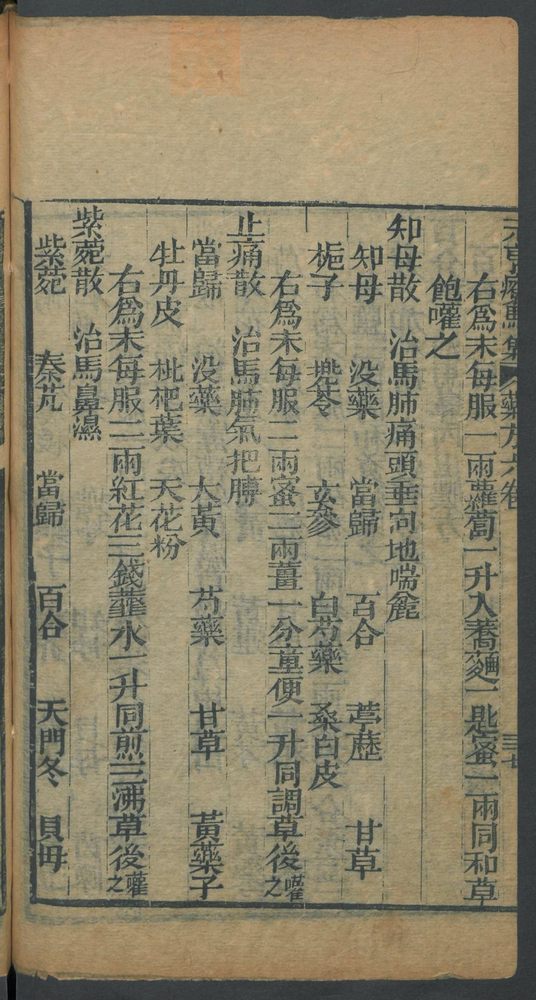 元亨療馬集 藥方六卷 三七
右爲末每服一兩蘿蔔一升入蕎麵一匙蜜一兩同和草
飽嚾之
知母散 治馬肺痛頭垂向地喘麄
知母 没藥 當歸 百合 葶藶 甘草
梔子 玄參 白芍藥 桑白皮
右爲末每服二兩蜜二兩薑一分童便一升同調草後嚾之
止痛散 治馬肺氣把膊
當歸 没藥 大黃 芍藥 甘草 黃藥子
牡丹皮 枇杷葉 天花粉
右爲末每服二兩紅花三錢虀水一升同煎三沸草後嚾之
紫菀散 治馬鼻濕
紫菀 秦艽 當歸 百合 天門冬 貝母